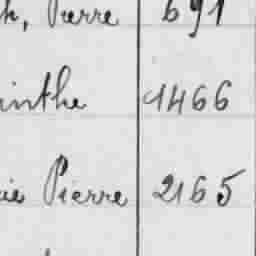 h, Pierre 691
inthe 1466
ie Pierre 2165